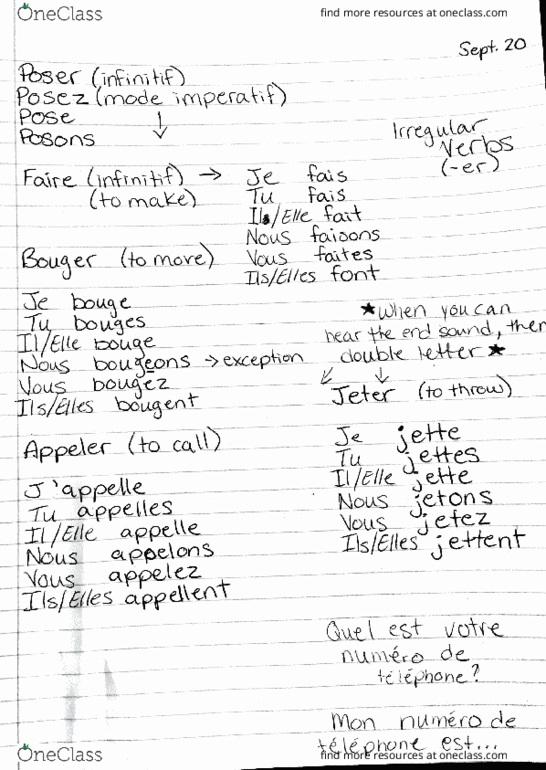 OneClass
find more resources at oneclass.com
Sept. 20
Poser (infinitif)
Posez (mode imperatif)
Pose ↓
Posons
Irregular
Verbs
(-er)
Faire (infinitif) →
(to make)
Je fais
Tu fais
Il/Elle fait
Nous faisons
Vous faites
Ils/Elles font
Bouger (to move)
Je bouge
Tu bouges
Il/Elle bouge
Nous bougeons → exception
Vous bougez
Ils/Elles bougent
★ When you can
hear the end sound, then
double letter ★
Jeter (to throw)
Je jette
Tu jettes
Il/Elle jette
Nous jetons
Vous jetez
Ils/Elles jettent
Appeler (to call)
J'appelle
Tu appelles
Il/Elle appelle
Nous appelons
Vous appelez
Ils/Elles appellent
Quel est votre
numéro de
téléphone?
Mon numéro de
téléphone est...
OneClass
find more resources at oneclass.com